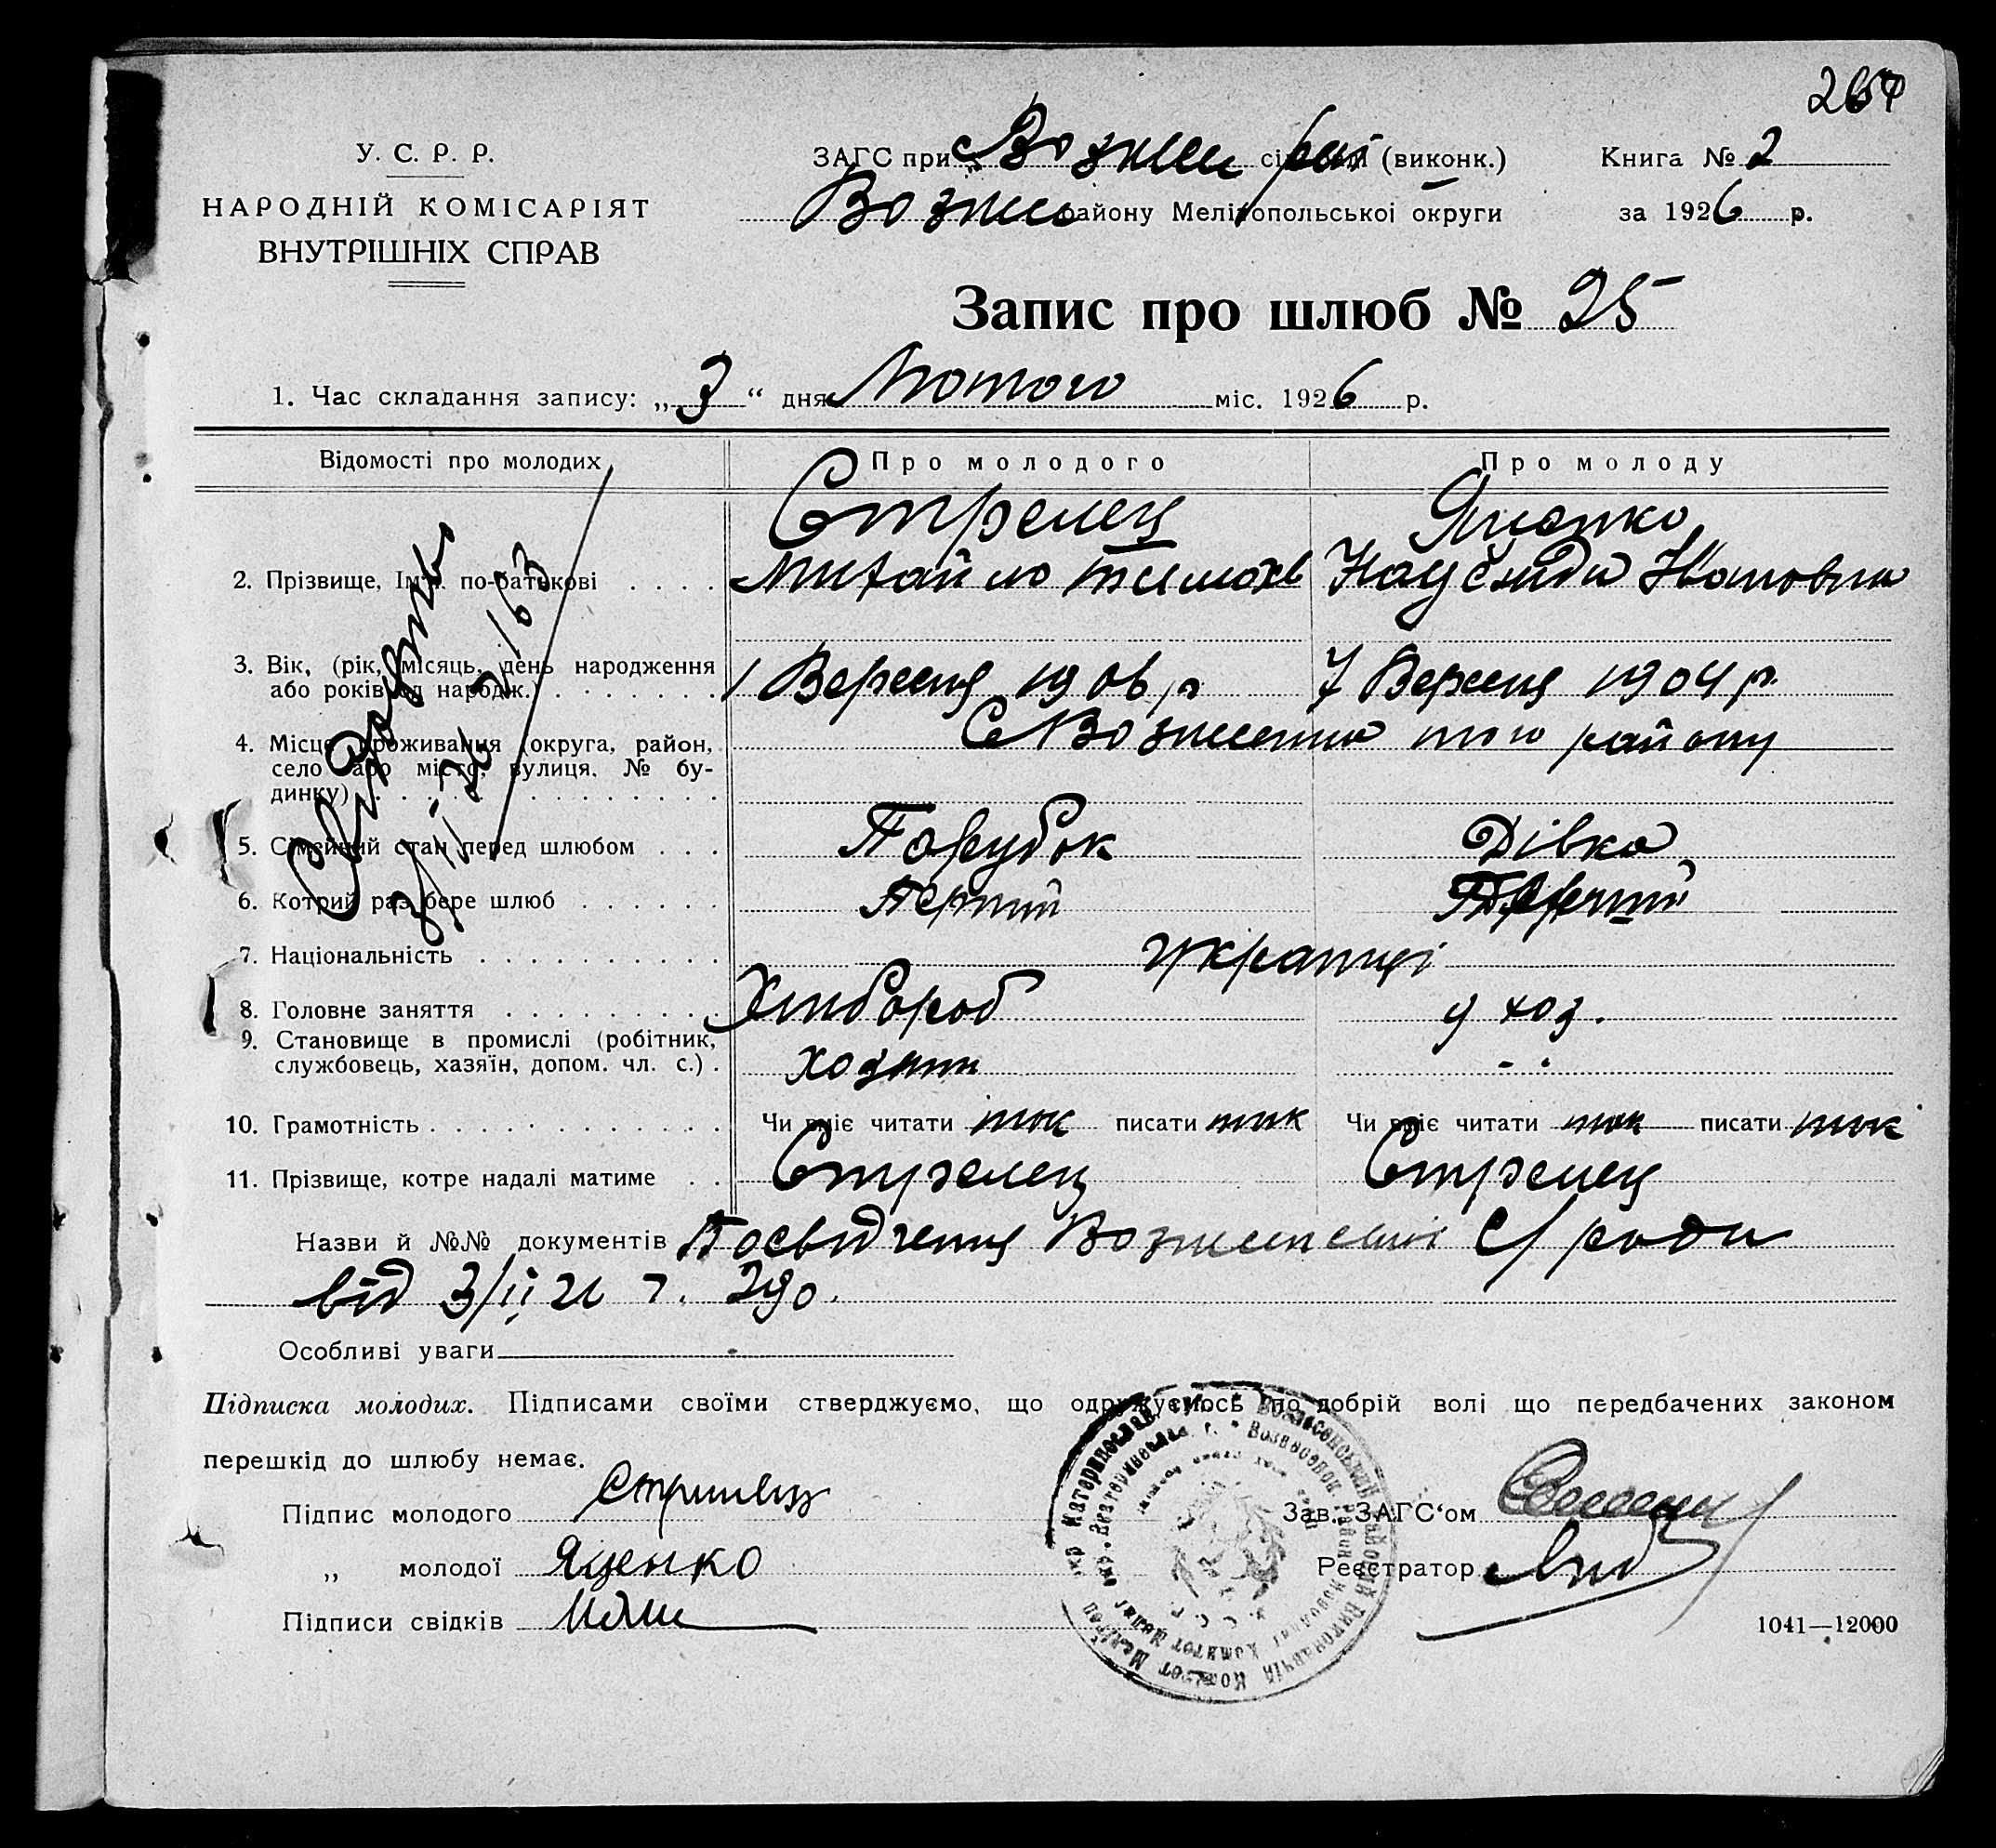 264
У. С. Р. Р.
НАРОДНІЙ КОМІСАРІЯТ
ВНУТРІШНІХ СПРАВ
ЗАГС при (виконк.) Книга № 2
району Мелітопольської округи за 1926 р.
Запис про шлюб № 25
1. Час складання запису: „3“ дня Лютого міс. 1926 р.
Відомості про молодих Про молодого Про молоду
Стрелец
2. Прізвище, Ім'я по-батькові . . . . Михайло Тимох Ивановна
3. Вік, (рік, місяць, день народження
або років од народж.) . . . . . . . 1 Вересня 1906 р 7 Вересня 1904 р.
4. Місце проживання (округа, район,
село або місто, вулиця. № бу-
динку) . . . . . . . . . . . . . . . С Вознесенка того району
5. Сімейний стан перед шлюбом . . . Парубок Дівка
6. Котрий раз бере шлюб . . . . . . Перший Перший
7. Національність . . . . . . . . . . українці
8. Головне заняття . . . . . . . . . Хлибороб у хоз.
9. Становище в промислі (робітник,
службовець, хазяїн, допом. чл. с.) . хозяин - " -
10. Грамотність . . . . . . . . . . . . Чи вміє читати так писати так Чи вміє читати так писати так
11. Прізвище, котре надалі матиме . . Стрелец Стрелец
Назви й №№ документів Посвідчення Вознесенської С/ ради
від 3/ІІ 26 р. 290.
Особливі уваги
Підписка молодих. Підписами своїми стверджуємо, що одружуємось по добрій волі що передбачених законом
перешкід до шлюбу немає.
Підпис молодого Стрилець Зав. ЗАГС'ом
„ молодої Яценко Реєстратор
Підписи свідків
1041—12000